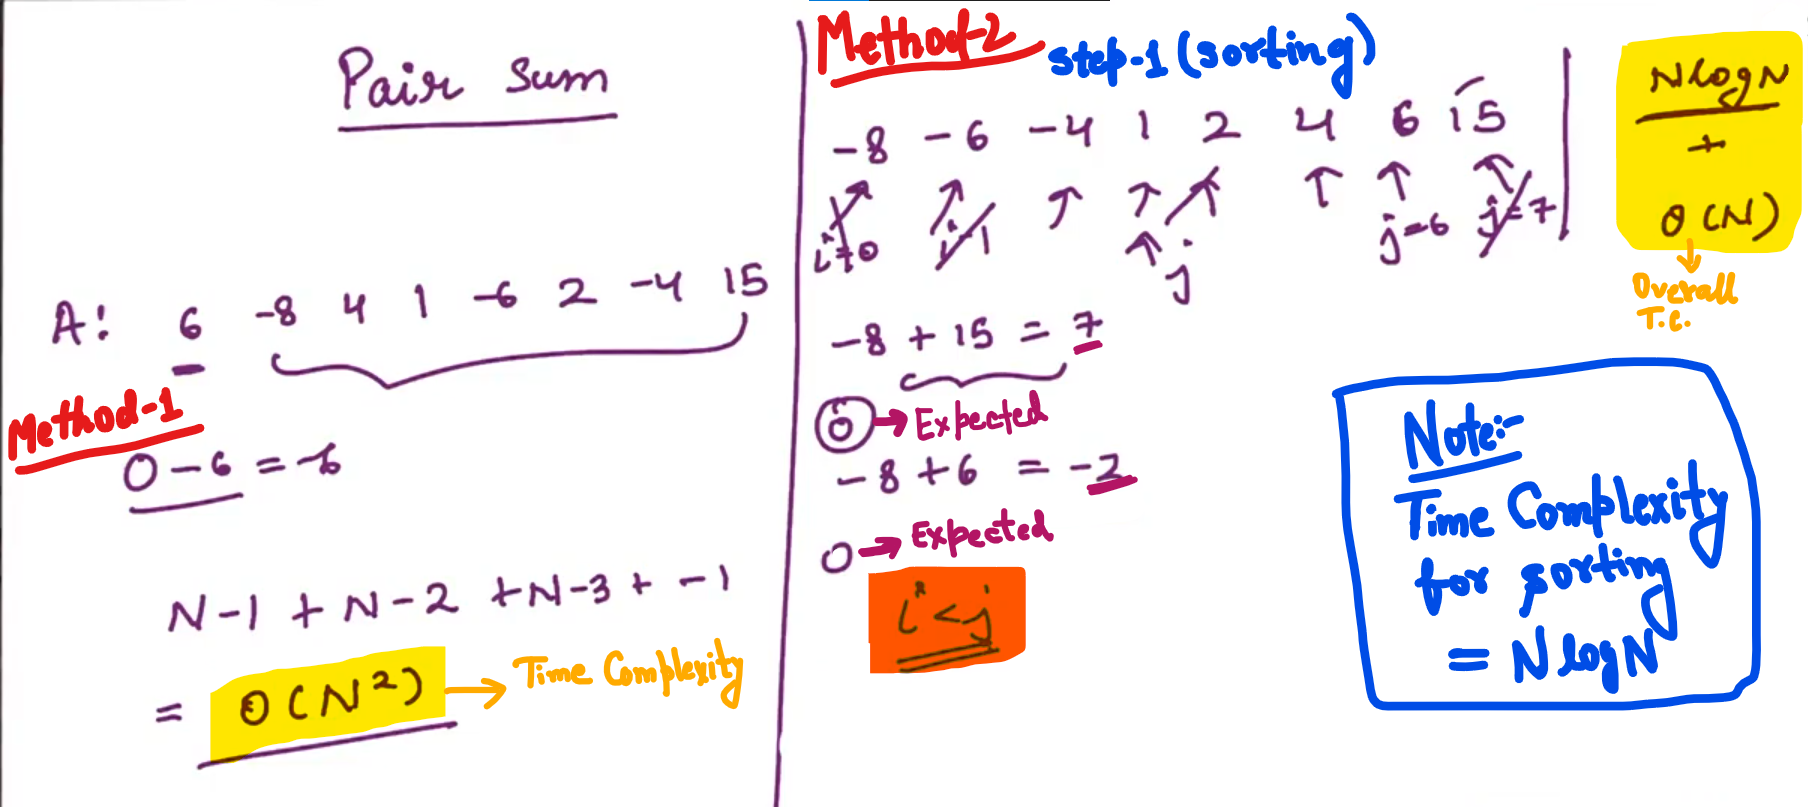 Pair Sum
A: 6 -8 4 1 -6 2 -4 15
Method-1
0-6 = -6
N-1 + N-2 + N-3 + -1
= O(N²) → Time Complexity
Method-2
step-1 (sorting)
-8 -6 -4 1 2 4 6 15
i=0 i=1 j j=6 j=7
-8 + 15 = 7
0 → Expected
-8 + 6 = -2
0 → Expected
i < j
NlogN
+
O(N)
Overall
T.C.
Note:-
Time Complexity
for sorting
= NlogN